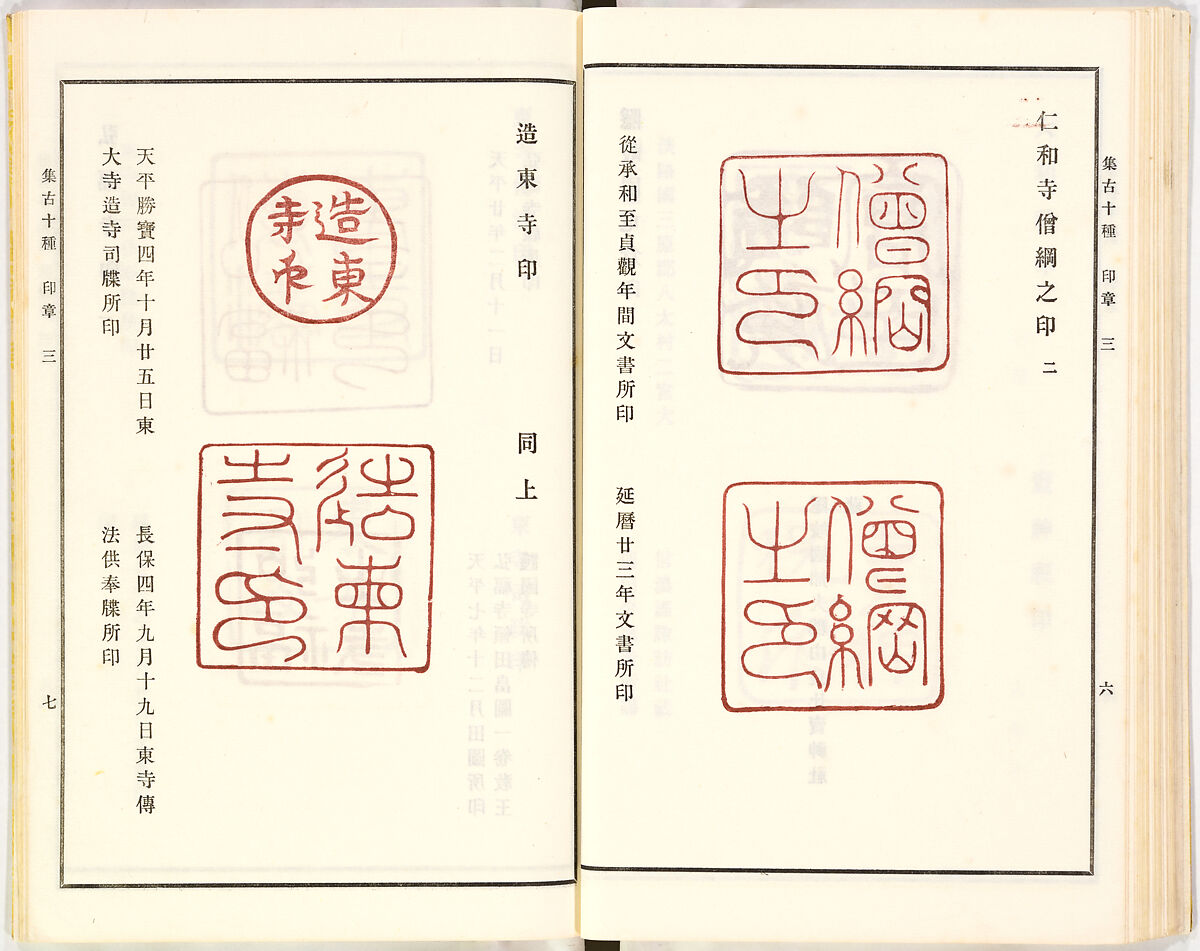 集古十種 印章 三
六
仁和寺僧綱之印 二
僧綱
之印
從承和至貞觀年間文書所印
僧綱
之印
延曆廿三年文書所印
造東寺印
造東
寺印
天平勝寶四年十月廿五日東
大寺造寺司牒所印
同上
造東
寺印
長保四年九月十九日東寺傳
法供奉牒所印
集古十種 印章 三
七